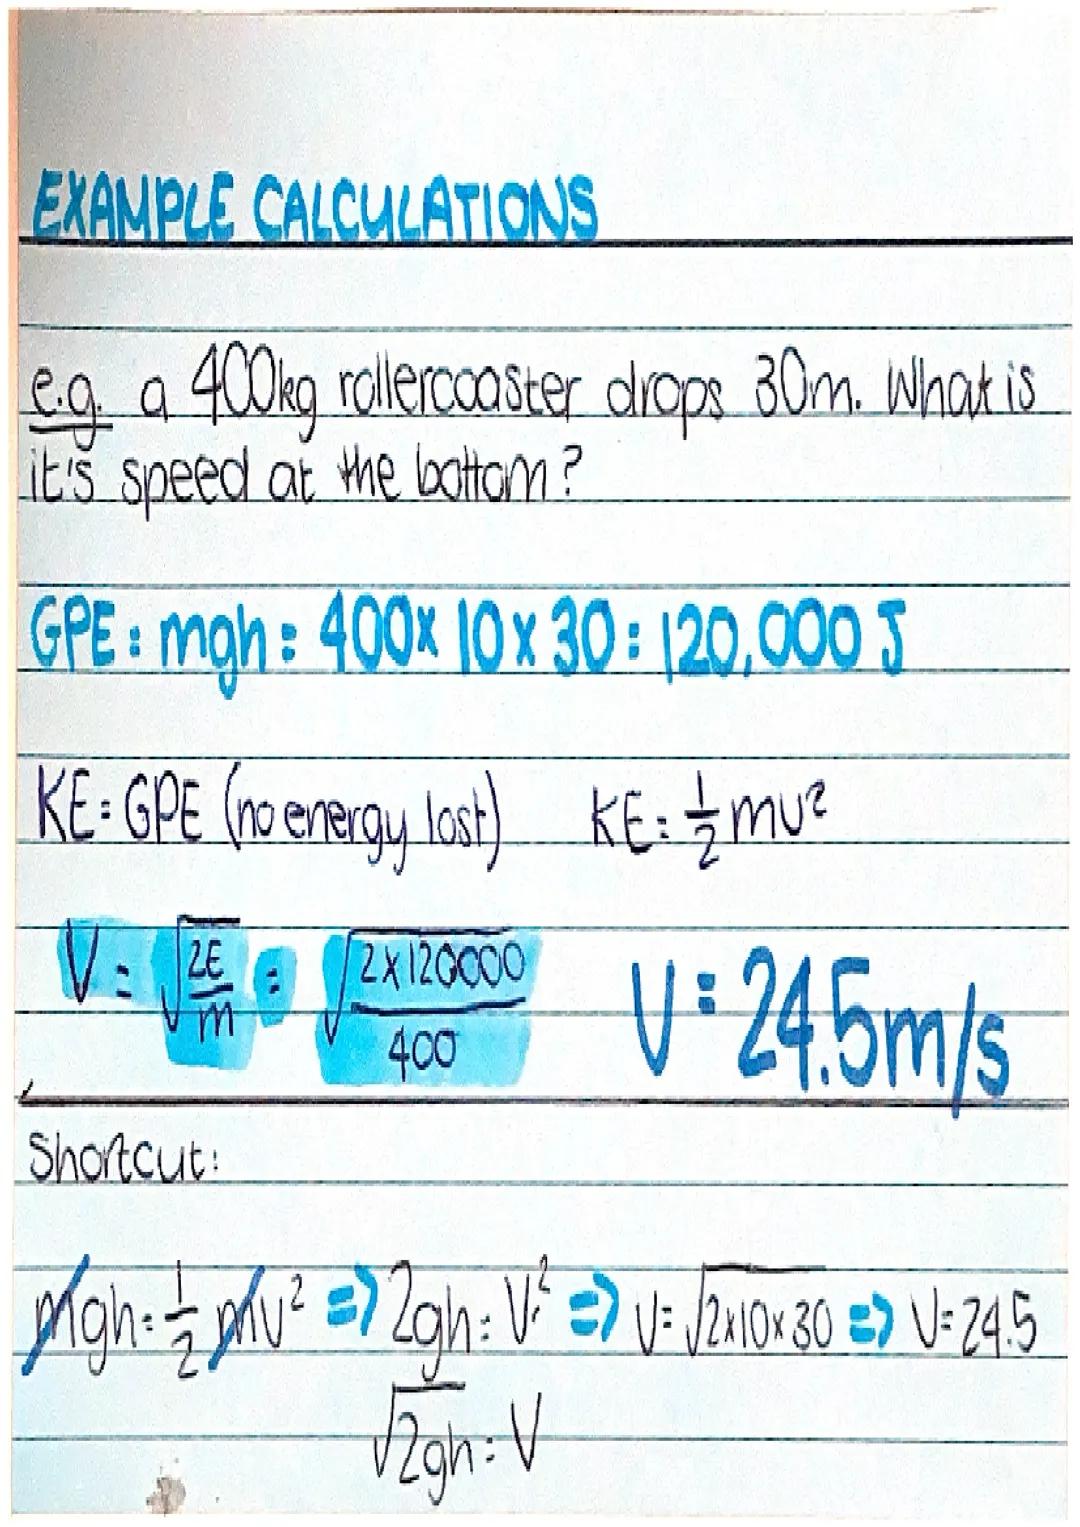 EXAMPLE CALCULATIONS
e.g. a 400kg rollercoaster drops 30m. What is
it's speed at the bottom?
GPE = mgh = 400 x 10 x 30 = 120,000 J
KE = GPE (no energy lost) KE = ½mv²
V = √(2E/m) = √(2 x 120000/400) V = 24.5m/s
Shortcut:
mgh = ½mv² => 2gh = V² => V = √2x10x30 => V = 24.5
√2gh = V